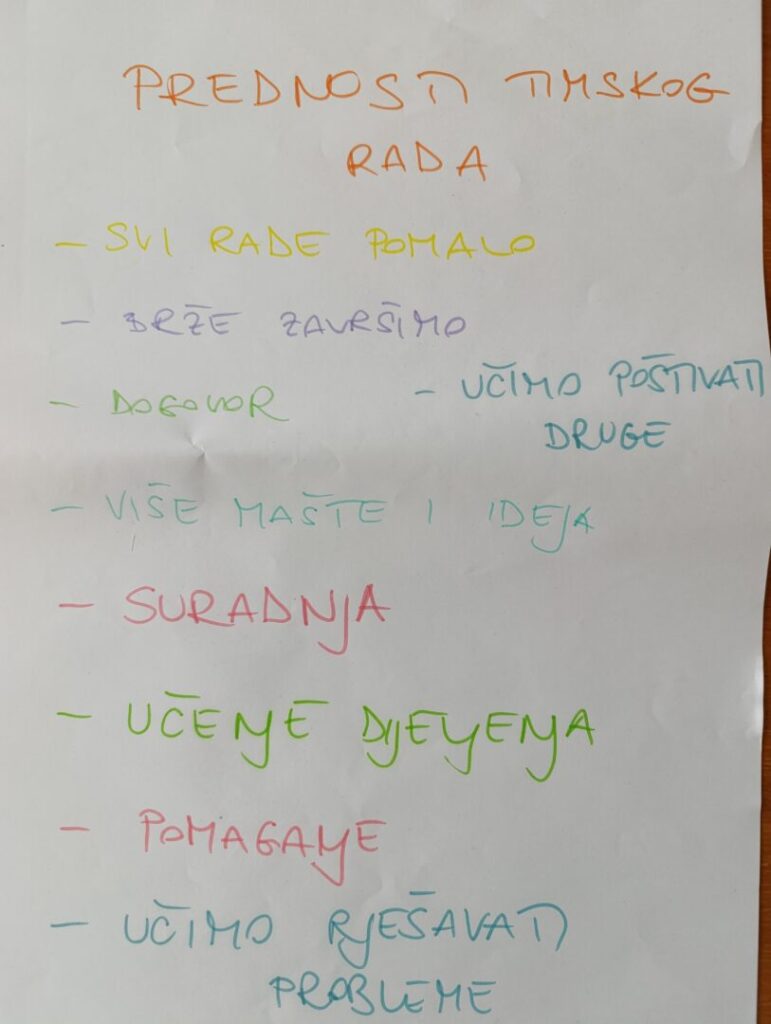 PREDNOSTI TIMSKOG
RADA
- SVI RADE POMALO
- BRŽE ZAVRŠIMO
- DOGOVOR
- UČIMO POŠTIVATI
DRUGE
- VIŠE MAŠTE I IDEJA
- SURADNJA
- UČENJE DIJELJENJA
- POMAGANJE
- UČIMO RJEŠAVATI
PROBLEME